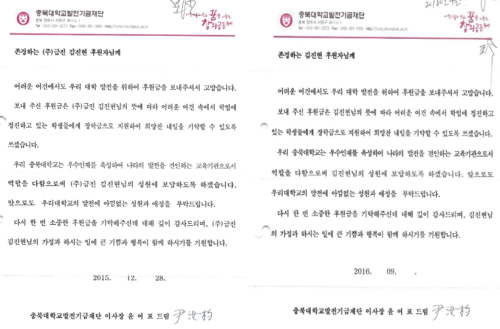 충북대학교발전기금재단
존경하는 (주)금진 김진현 후원자님께
어려운 여건에서도 우리 대학 발전을 위하여 후원금을 보내주셔서 고맙습니다.
보내 주신 후원금은 (주)금진 김진현님의 뜻에 따라 어려운 여건 속에서 학업에
정진하고 있는 학생들에게 장학금으로 지원하여 희망찬 내일을 기약할 수 있도록
쓰겠습니다.
우리 충북대학교는 우수인재를 육성하여 나라의 발전을 견인하는 교육기관으로서
역할을 다함으로써 (주)금진 김진현님의 성원에 보답하도록 하겠습니다.
앞으로도 우리대학의 발전에 아낌없는 성원과 애정을 부탁드립니다.
다시 한 번 소중한 후원금을 기탁해주신데 대해 깊이 감사드리며, (주)금진
김진현님의 가정과 하시는 일에 큰 기쁨과 행복이 함께 하시기를 기원합니다.
2015. 12. 28.
충북대학교발전기금재단 이사장 윤 여 표 드림 尹汝杓
충북대학교발전기금재단
존경하는 김진현 후원자님께
어려운 여건에서도 우리 대학 발전을 위하여 후원금을 보내주셔서 고맙습니다.
보내 주신 후원금은 김진현님의 뜻에 따라 어려운 여건 속에서 학업에 정진하고
있는 학생들에게 장학금으로 지원하여 희망찬 내일을 기약할 수 있도록 쓰겠습니다.
우리 충북대학교는 우수인재를 육성하여 나라의 발전을 견인하는 교육기관으로서
역할을 다함으로써 김진현님의 성원에 보답하도록 하겠습니다. 앞으로도
우리대학의 발전에 아낌없는 성원과 애정을 부탁드립니다.
다시 한 번 소중한 후원금을 기탁해주신데 대해 깊이 감사드리며, 김진현님
의 가정과 하시는 일에 큰 기쁨과 행복이 함께 하시기를 기원합니다.
2016. 09. .
충북대학교발전기금재단 이사장 윤 여 표 드림 尹汝杓